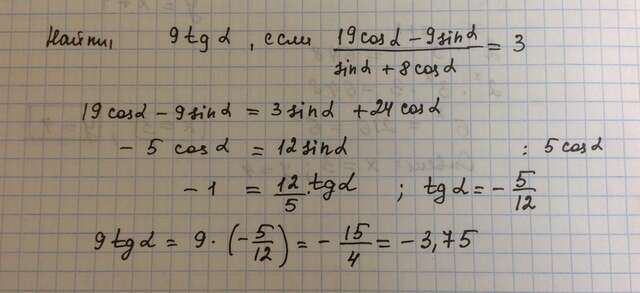 Найти, 9 tg α, если (19 cos α − 9 sin α)/(sin α + 8 cos α) = 3
19 cos α − 9 sin α = 3 sin α + 24 cos α
− 5 cos α = 12 sin α : 5 cos α
− 1 = 12/5 · tg α ; tg α = − 5/12
9 tg α = 9 · (− 5/12) = − 15/4 = − 3,75